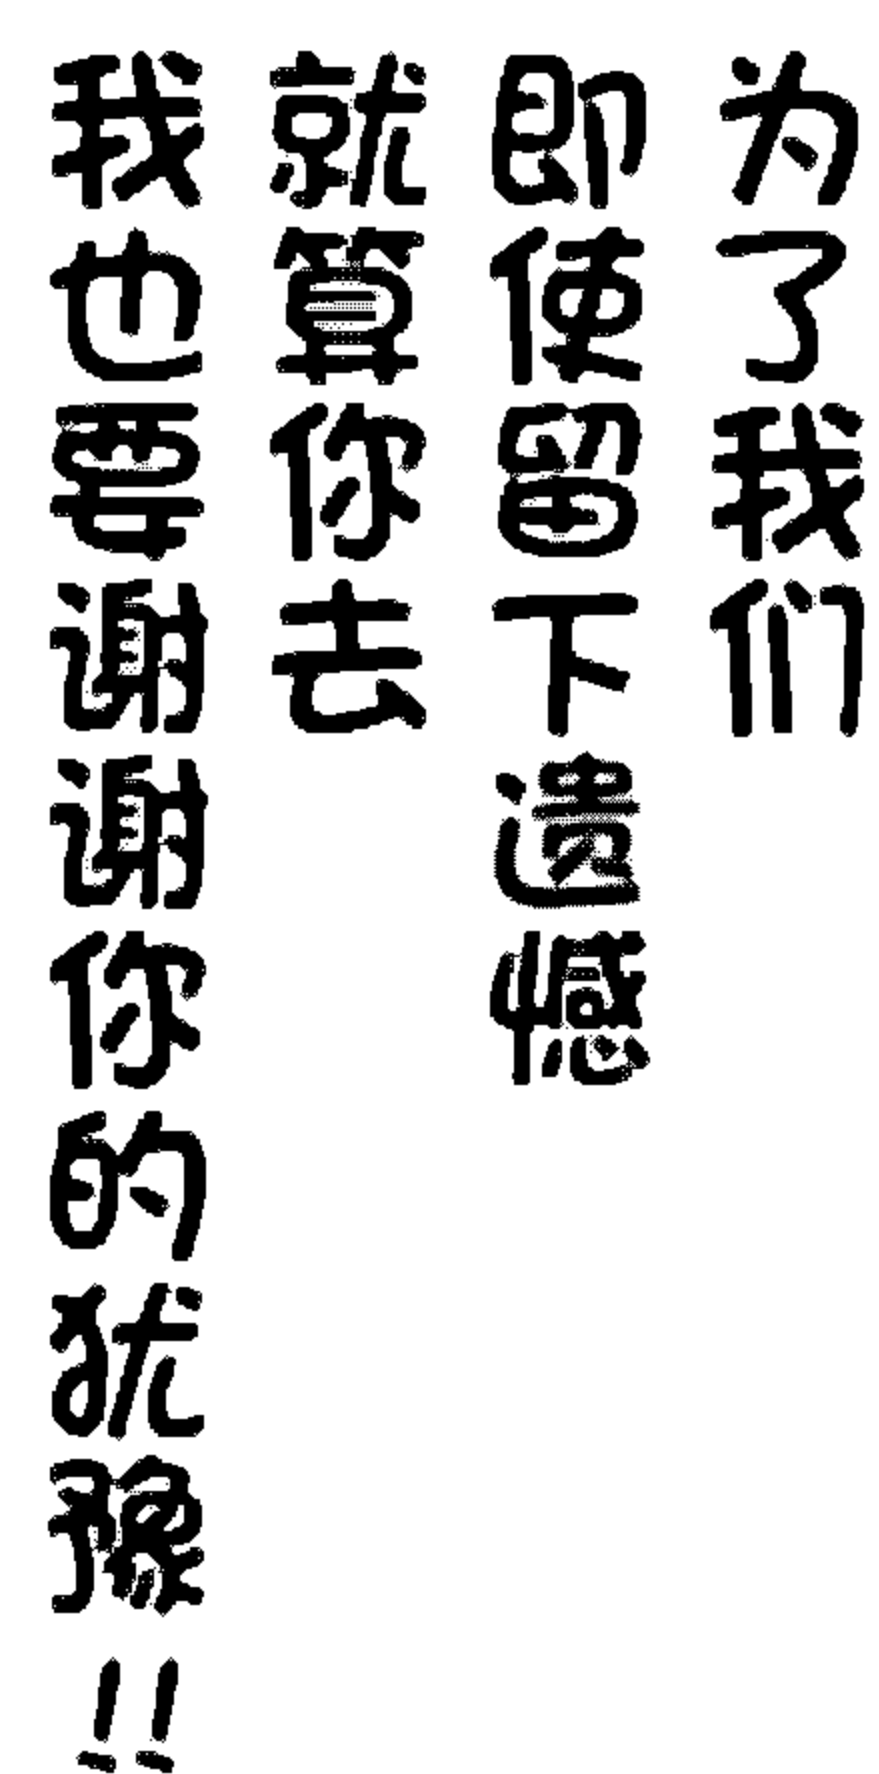 为了我们
即使留下遗憾
就算你去
我也要谢谢你的犹豫!!